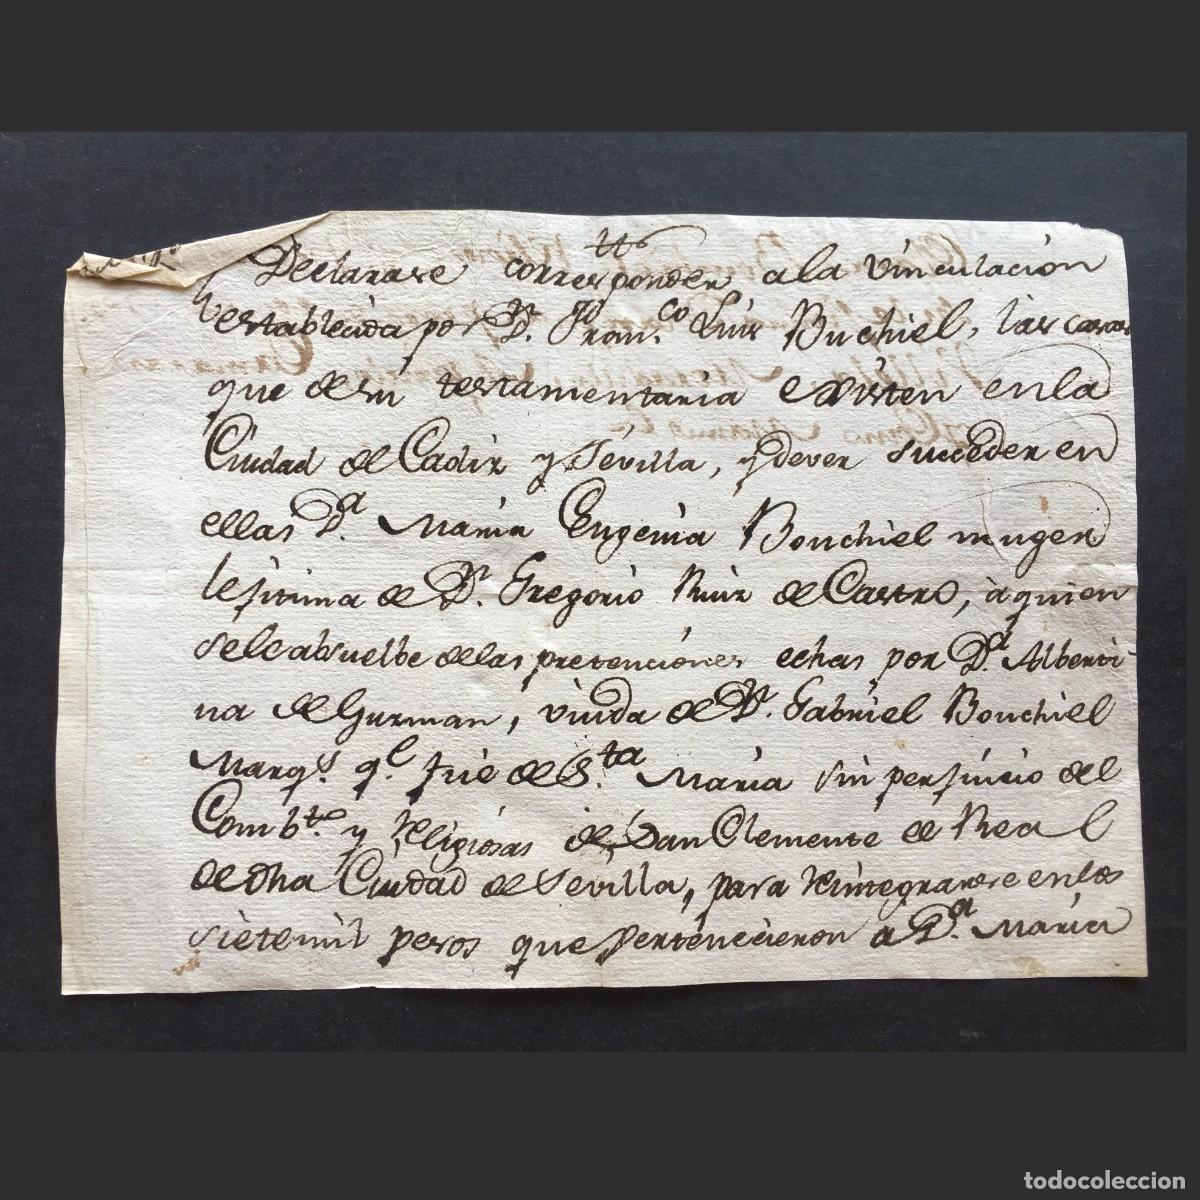 Declarase corresponder, a la vinculacion
establecida por Dn. Fran.co Luis Buchiel, las casas
que de su testamentaria existen en la
Ciudad de Cadiz y Sevilla, y dever succeder en
ellas D.a Maria Eugenia Bouchiel muger
lejitima de Dn. Gregorio Ruiz de Castro, à quien
se le absuelbe de las pretenciones echas por D.a Alberti-
na de Guzman, viuda de Dn. Gabriel Bouchiel
Marqs. qe. fue de S.ta Maria sin perjuicio del
Combto. y religiosas de San Clemente de Real
de dha Ciudad de Sevilla, para reintegrarse en los
siete mil pesos que pertenecieron a D.a Maria
todocoleccion